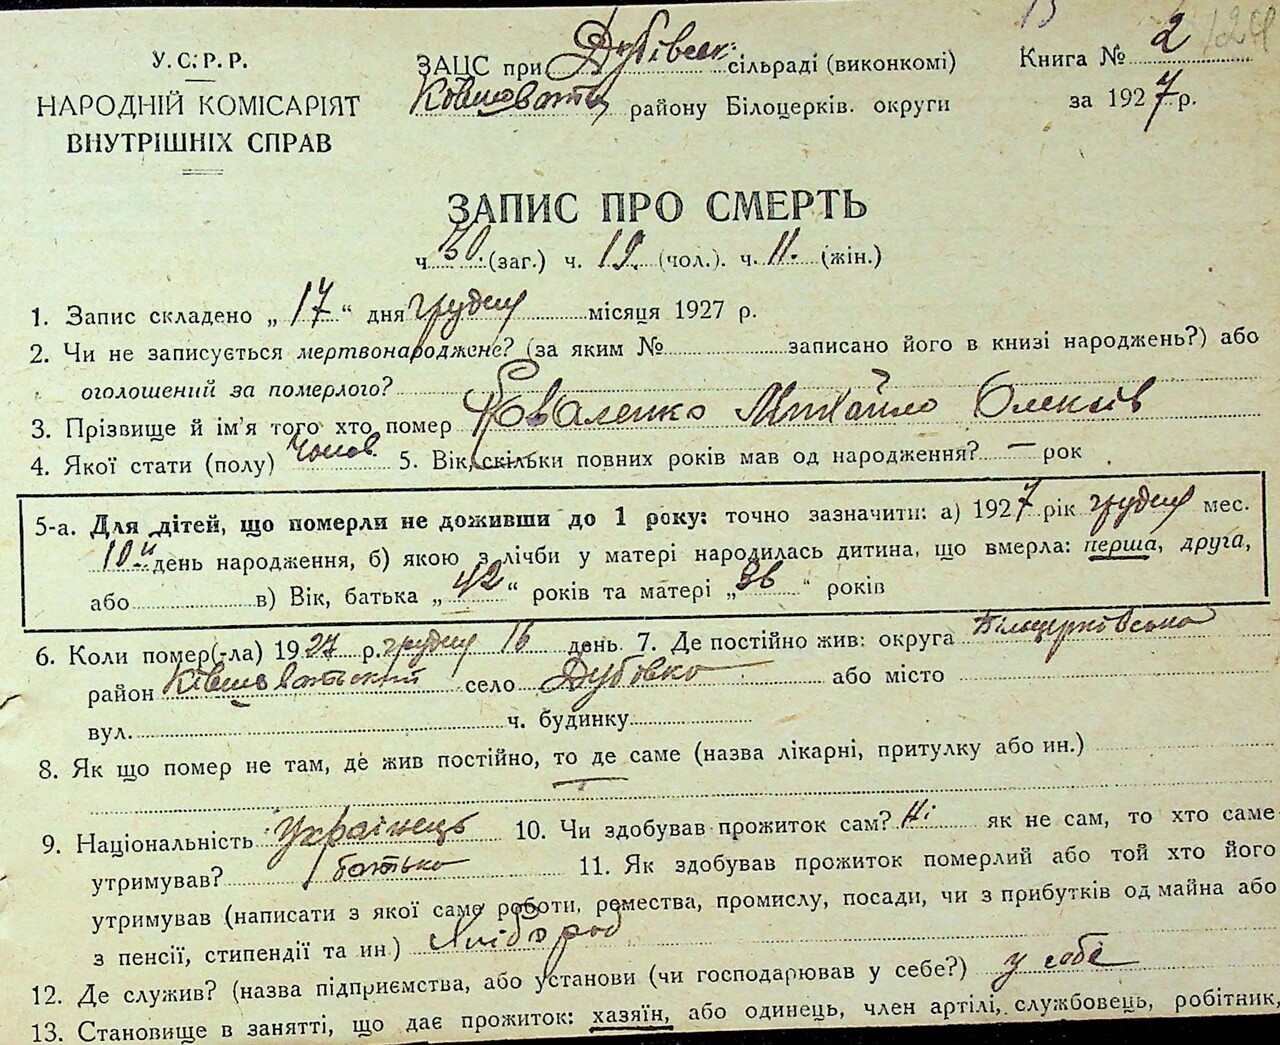 У. С. Р. Р.
НАРОДНІЙ КОМІСАРІЯТ
ВНУТРІШНІХ СПРАВ
ЗАЦС при Дубівськ. сільраді (виконкомі)
району Білоцерків. округи
Книга № 2
за 1927 р.
ЗАПИС ПРО СМЕРТЬ
ч. 30 (заг.) ч. 19. (чол.). ч. 11. (жін.)
1. Запис складено „ 17 “ дня грудня місяця 1927 р.
2. Чи не записується мертвонароджене? (за яким № записано його в книзі народжень?) або
оголошений за померлого?
3. Прізвище й ім'я того хто помер Коваленко Михайло Олексіїв
4. Якої стати (полу) чолов 5. Вік, скільки повних років мав од народження? — рок
5-а. Для дітей, що померли не доживши до 1 року: точно зазначити: а) 1927 рік грудня мес.
10 й день народження, б) якою з лічби у матері народилась дитина, що вмерла: перша, друга,
або в) Вік, батька „ 42 “ років та матері „ 36 “ років
6. Коли помер(-ла) 1927 р. грудня 16 день 7. Де постійно жив: округа Білоцерківська
район Ківшоватський село Дубовка або місто
вул. ч. будинку
8. Як що помер не там, де жив постійно, то де саме (назва лікарні, притулку або ин.)
9. Національність Українець 10. Чи здобував прожиток сам? Ні як не сам, то хто саме
утримував? батько 11. Як здобував прожиток померлий або той хто його
утримував (написати з якої саме роботи, ремества, промислу, посади, чи з прибутків од майна або
з пенсії, стипендії та ин.) Хлібороб
12. Де служив? (назва підприємства, або установи (чи господарював у себе?) у себе
13. Становище в занятті, що дає прожиток: хазяїн, або одинець, член артілі, службовець, робітник,